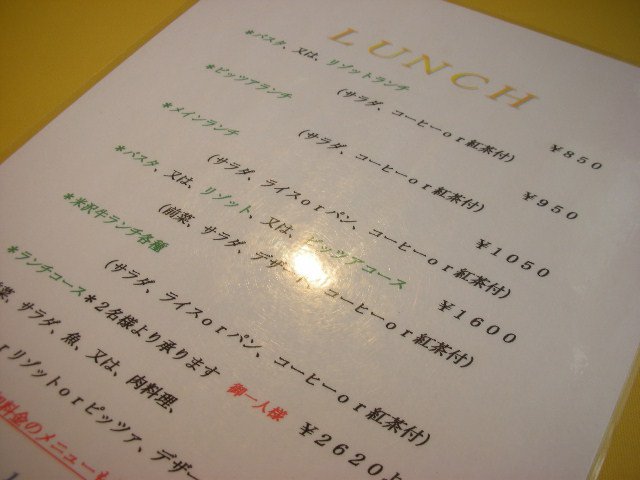 LUNCH
*パスタ、又は、リゾットランチ
(サラダ、コーヒーor紅茶付) ￥850
*ピッツアランチ
(サラダ、コーヒーor紅茶付) ￥950
*メインランチ
(サラダ、ライスorパン、コーヒーor紅茶付) ￥1050
*パスタ、又は、リゾット、又は、ピッツアコース
(前菜、サラダ、デザート、コーヒーor紅茶付) ￥1600
*米沢牛ランチ各種
(サラダ、ライスorパン、コーヒーor紅茶付)
*ランチコース*2名様より承ります 御一人様 ￥2620
菜、サラダ、魚、又は、肉料理、
rリゾットorピッツァ、デザー
料金のメニューも